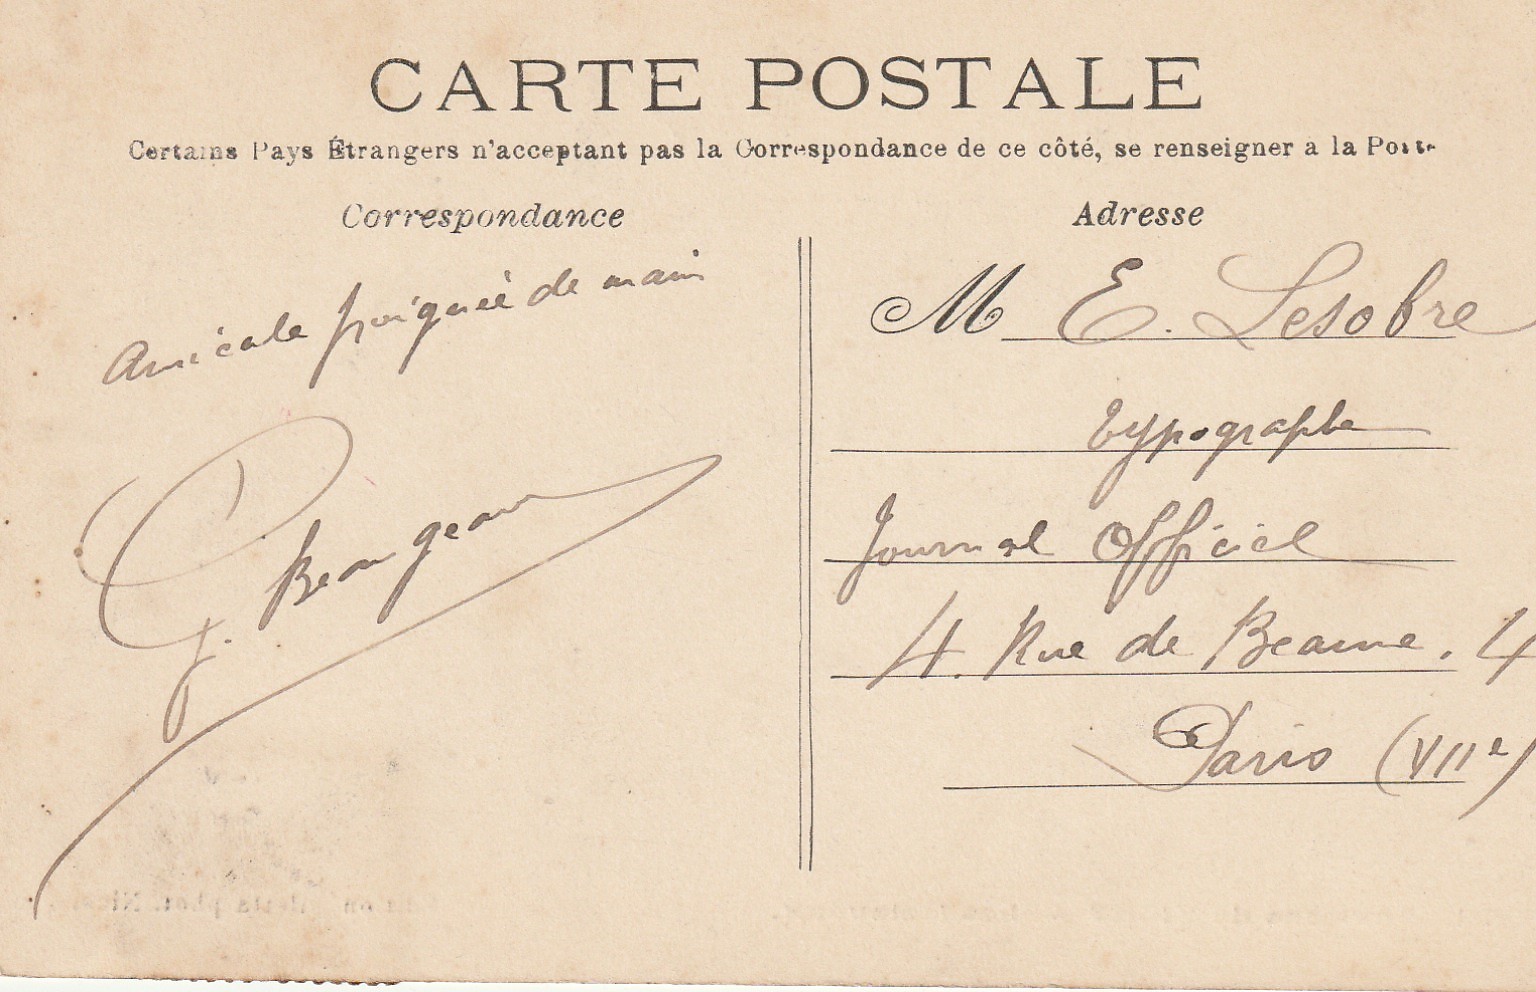 CARTE POSTALE
Certains Pays Étrangers n'acceptant pas la Correspondance de ce côté, se renseigner a la Poste
Correspondance
Amicale poignée de main
Adresse
M E. Lesobre
Typographe
Journal Officiel
4. Rue de Beaune. 4
Paris (VIIe)